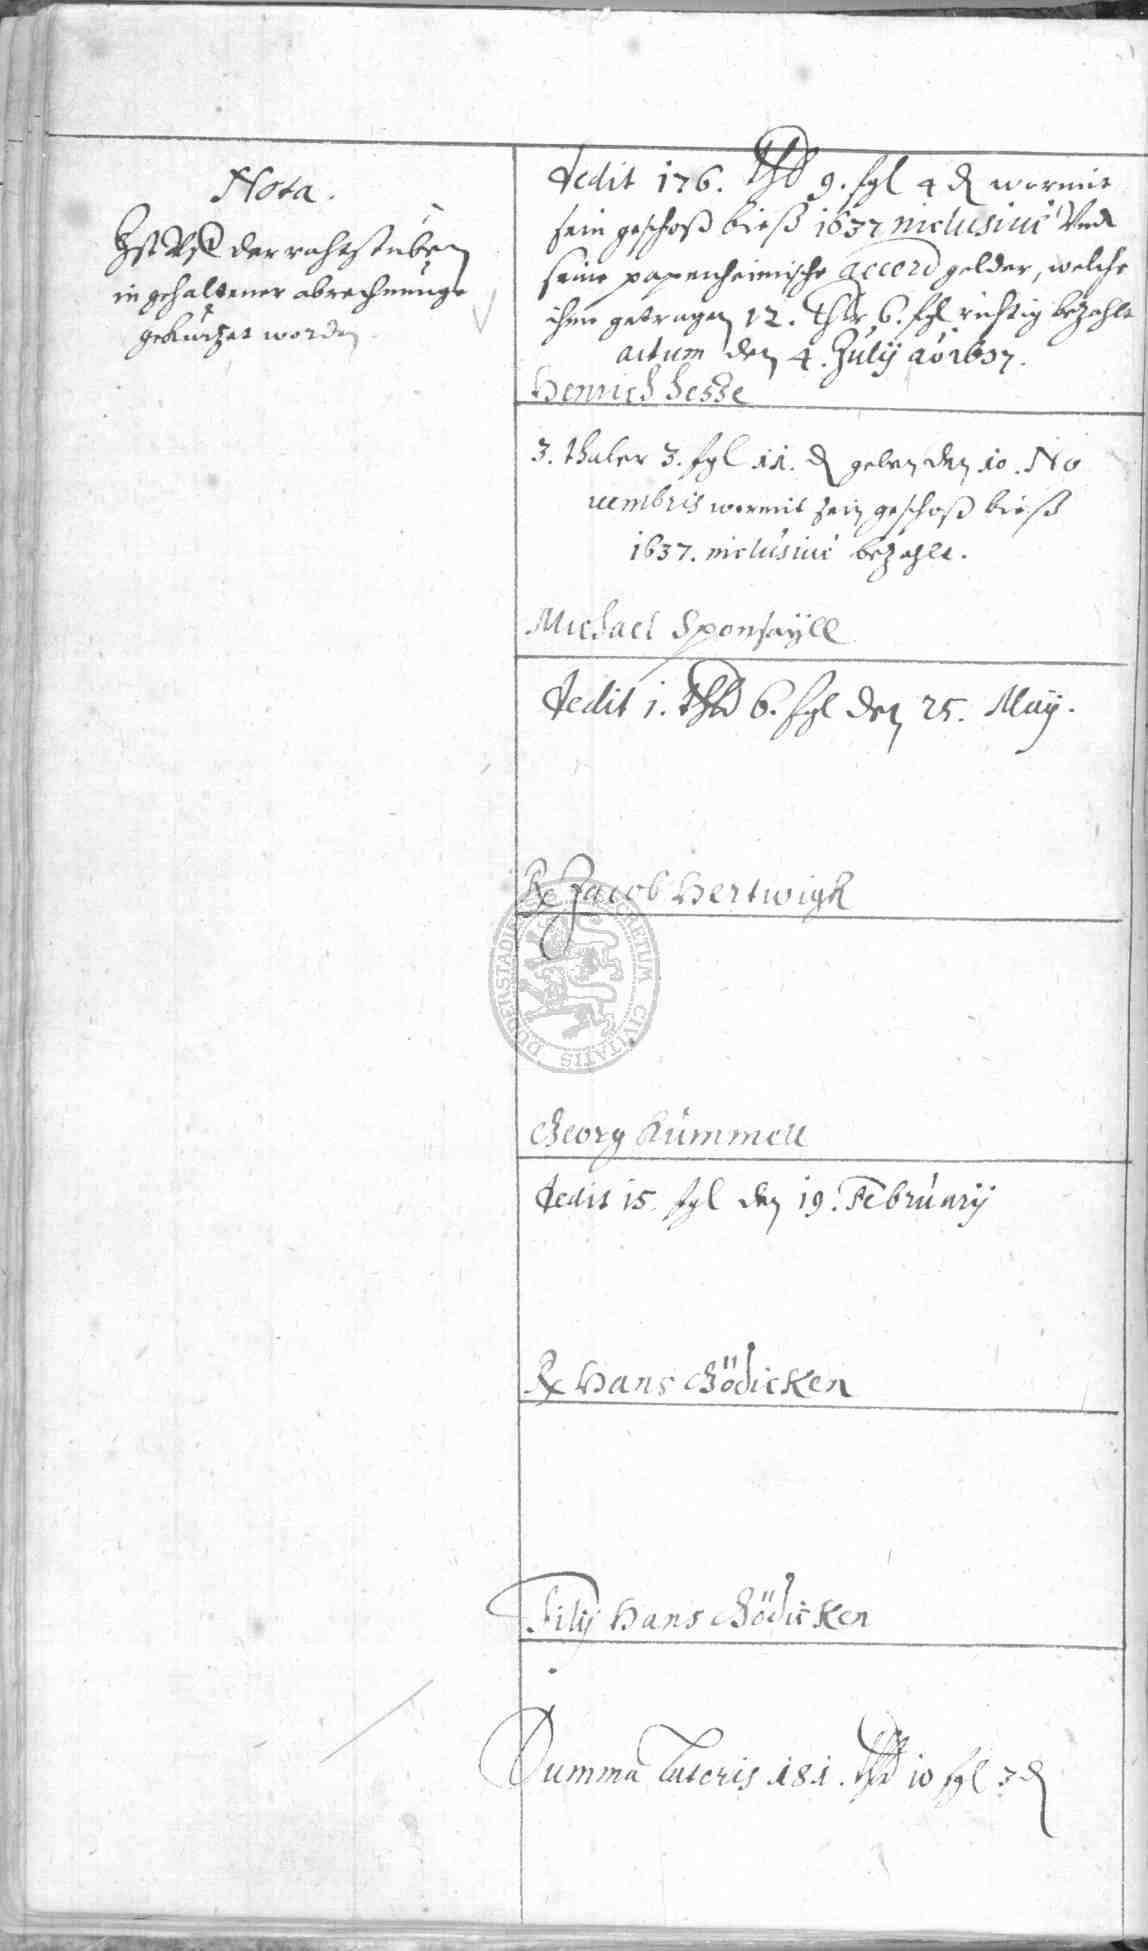 Nota.
Ist Vff der rahtstuben
in gehaltener abrechnunge
gekürtzet worden
dedit 176. thlr 9. sgl 4 d wormit
sein geschoß bieß 1637 inclusiué Vnd
seine papenheimische accord gelder, welche
ihme getragen 12. thlr 6. sgl richtig bezahlt
actum den 4. Julij ao 1637.
Henrich Hesse
3. thaler 3. sgl 11. d geben den 10. No
uembris wormit sein geschoß bieß
1637. inclusiué bezahlt.
Michael Sponsayll
dedit 1. thlr 6. sgl den 25. Maij.
Rx Jacob Hertwigk
DUDERSTADIENSIS SECRETUM CIVITATIS
Georg Kümmell
dedit 15. sgl den 19. Februarij
Rx Hans Gödicken
Filij Hans Gödicken
Summa Lateris 181. thlr 10 sgl 3 d